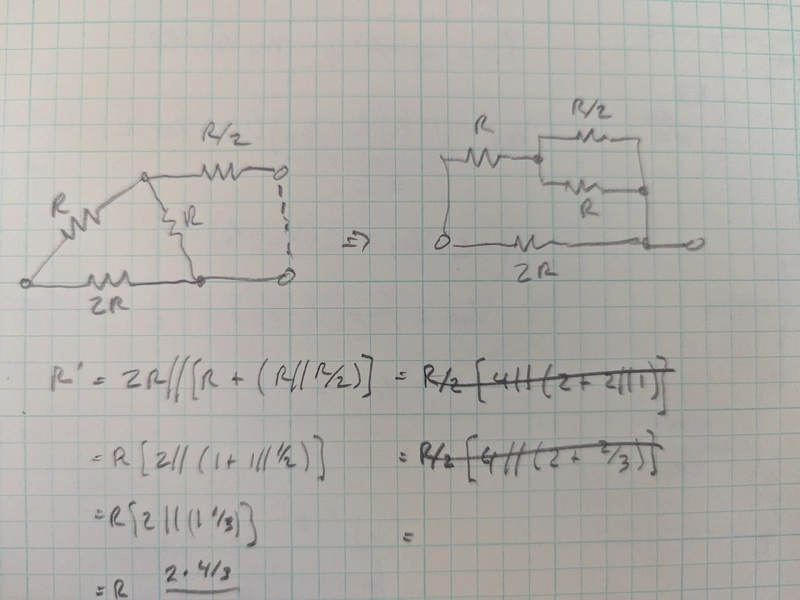 R/2
R
R
2R
⇒
R/2
R
R
2R
R' = 2R//[R + (R//R/2)] = R/2 [4//(2 + 2//1)]
= R [2// (1 + 1// 1/2)] = R/2 [4//(2 + 2/3)]
= R[2//(1 1/3)] =
= R 2 · 4/3